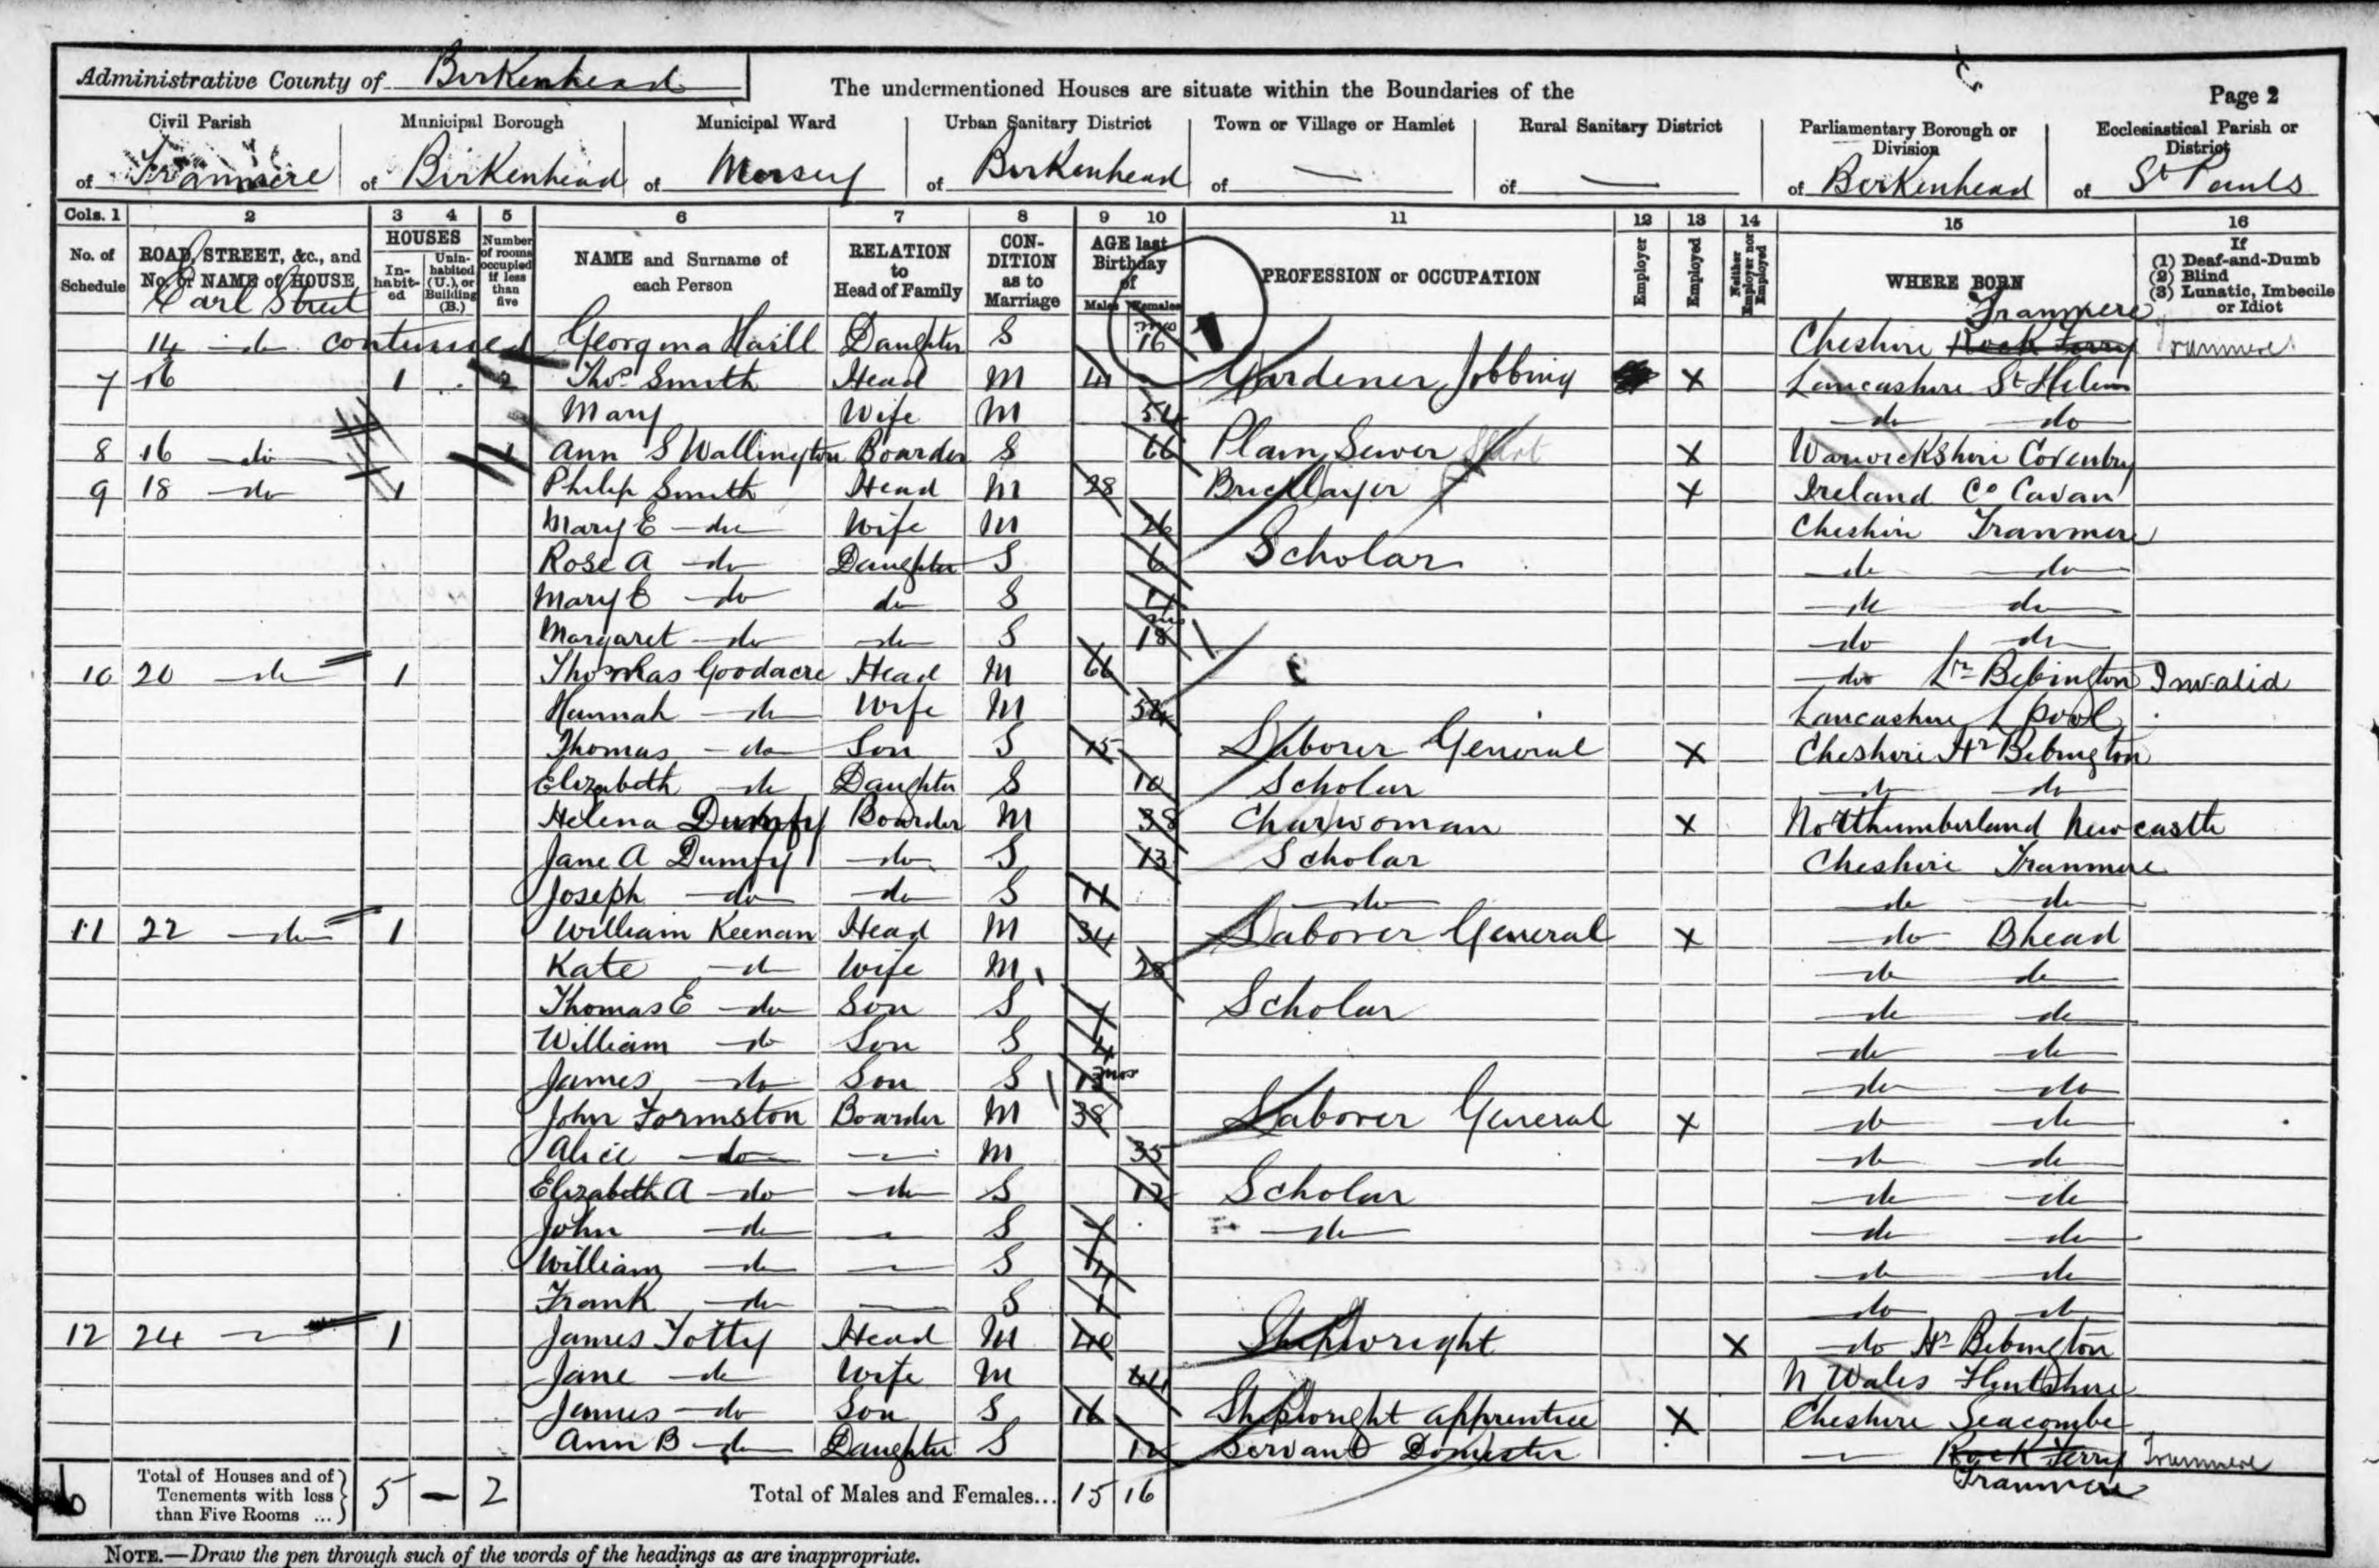 Administrative County of Birkenhead The undermentioned Houses are situate within the Boundaries of the Page 2
Civil Parish Municipal Borough Municipal Ward Urban Sanitary District Town or Village or Hamlet Rural Sanitary District Parliamentary Borough or Division Ecclesiastical Parish or District
of Tranmere of Birkenhead of Mersey of Birkenhead of — of — of Birkenhead of St Pauls
Cols. 1 2 3 4 5 6 7 8 9 10 11 12 13 14 15 16
No. of Schedule ROAD, STREET, &c., and No. or NAME of HOUSE HOUSES Inhabited Uninhabited (U.), or Building (B.) Number of rooms occupied if less than five NAME and Surname of each Person RELATION to Head of Family CONDITION as to Marriage AGE last Birthday of Males Females PROFESSION or OCCUPATION Employer Employed Neither Employer nor Employed WHERE BORN If (1) Deaf-and-Dumb (2) Blind (3) Lunatic, Imbecile or Idiot
Earl Street Tranmere
14 do continued Georgina Haill Daughter S mos 16 1 Cheshire Rock Ferry Tranmere
7 16 1 2 Thos Smith Head M 41 Gardener Jobbing X Lancashire St Helens
Mary Wife M 54 do do
8 16 do 1 Ann S Wallington Boarder S 66 Plain Sewer X Warwickshire Coventry
9 18 do 1 Philip Smith Head M 28 Bricklayer X Ireland Co Cavan
Mary E do Wife M 26 Cheshire Tranmere
Rose A do Daughter S 6 Scholar do do
Mary E do do S do do
Margaret do do S mos 18 do do
10 20 do 1 Thomas Goodacre Head M 66 do Lr Bebington Invalid
Hannah do Wife M 54 Lancashire L pool
Thomas do Son S 15 Laborer General X Cheshire Hr Bebington
Elizabeth do Daughter S 10 Scholar do do
Helena Dumfy Boarder M 38 Charwoman X Northumberland Newcastle
Jane A Dumfy do S 13 Scholar Cheshire Tranmere
Joseph do do S 11 do do do
11 22 do 1 William Keenan Head M 34 Laborer General X do Bhead
Kate do Wife M 28 do do
Thomas E do Son S Scholar do do
William do Son S 4 do do
James do Son S 13 mos do do
John Formston Boarder M 38 Laborer General X do do
Alice do — M 35 do do
Elizabeth A do do S 12 Scholar do do
John do — S 7 do do do
William do — S 4 do do
Frank do — S 1 do do
12 24 — 1 James Totty Head M 40 Shipwright X do Hr Bebington
Jane do Wife M 44 N Wales Flintshire
James do Son S 16 Shipwright apprentice X Cheshire Seacombe
Ann B do Daughter S 12 Servant Domestic — Rock Ferry Tranmere
Tranmere
6 Total of Houses and of Tenements with less than Five Rooms ... 5 — 2 Total of Males and Females... 15 16
NOTE.—Draw the pen through such of the words of the headings as are inappropriate.